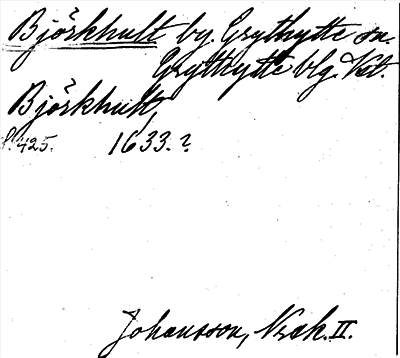 Björkhult by. Grythytte sn.
Grythytte blg. Vstl.
Björkhult,
s. 425. 1633.?
Johansson, Norask. II.